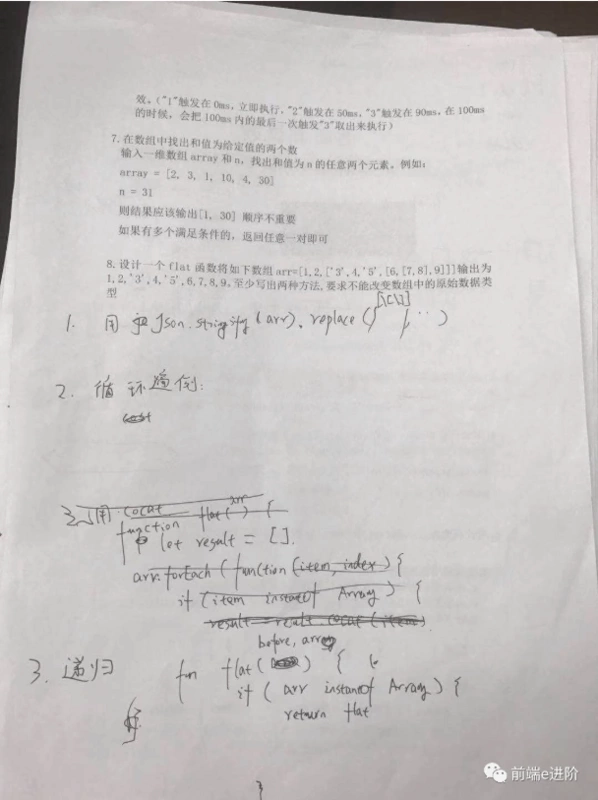 效。("1"触发在0ms,立即执行,"2"触发在50ms,"3"触发在90ms,在100ms
的时候,会把100ms内的最后一次触发"3"取出来执行)
7.在数组中找出和值为给定值的两个数
输入一维数组array和n,找出和值为n的任意两个元素。例如:
array = [2, 3, 1, 10, 4, 30]
n = 31
则结果应该输出[1, 30] 顺序不重要
如果有多个满足条件的,返回任意一对即可
8.设计一个flat函数将如下数组arr=[1,2,['3',4,'5',[6,[7,8],9]]]输出为
1,2,'3',4,'5',6,7,8,9,至少写出两种方法,要求不能改变数组中的原始数据类
型
1. 用 Json.stringify(arr).replace(/[\[\]]/,'')
2. 循环遍例:
3. 用 cocat
function flat(arr) {
let result = [].
arr.forEach(function(item,index){
if (item instanceof Array) {
result = result.cocat(item)
before, array
3. 递归 fun flat( ) {
if( arr instanceof Array) {
return flat
前端e进阶